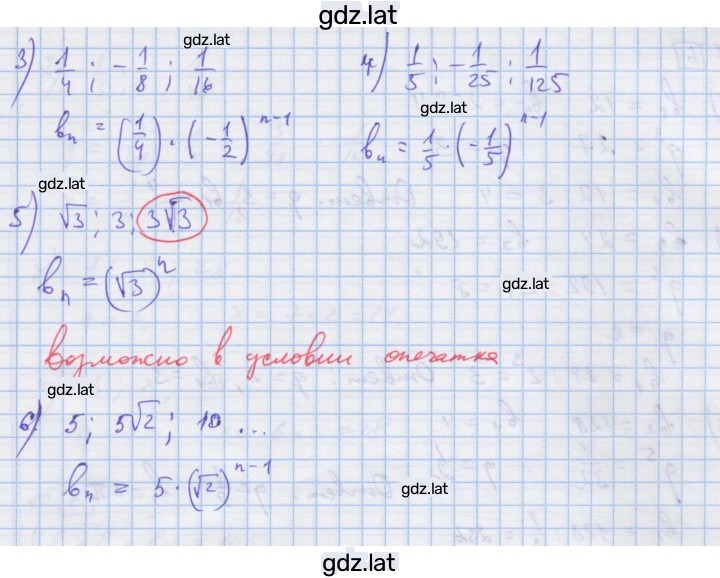 gdz.lat
3) 1/4 ; -1/8 ; 1/16
gdz.lat
bₙ = (1/4) · (-1/2)ⁿ⁻¹
4) 1/5 ; -1/25 ; 1/125
gdz.lat
bₙ = 1/5 · (-1/5)ⁿ⁻¹
gdz.lat
5) √3 ; 3 ; 3√3
bₙ = (√3)ⁿ
gdz.lat
возможно в условии опечатка
gdz.lat
6) 5 ; 5√2 ; 10 ...
bₙ = 5 · (√2)ⁿ⁻¹
gdz.lat
gdz.lat